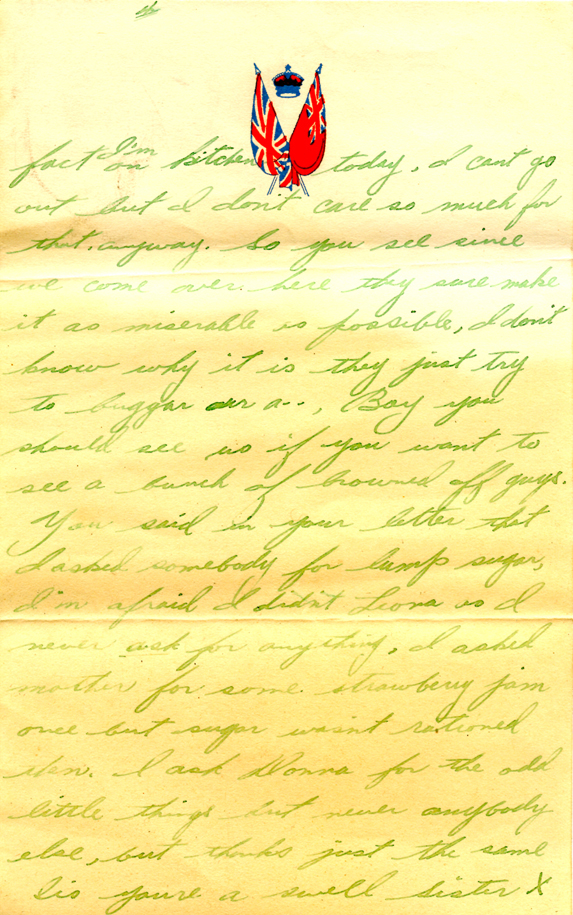 fact I'm on kitchen today, I cant go
out but I don't care so much for
that anyway. So you see since
we come over here they sure make
it as miserable as possible, I don't
know why it is they just try
to buggar our a--, Boy you
should see us if you want to
see a bunch of browned off guys.
You said in your letter that
I asked somebody for lump sugar,
I'm afraid I didn't Leona as I
never ask for anything, I asked
mother for some strawberry jam
once but sugar wasn't rationed
then. I ask Donna for the odd
little things but never anybody
else, but thanks just the same
Sis youre a swell sister X